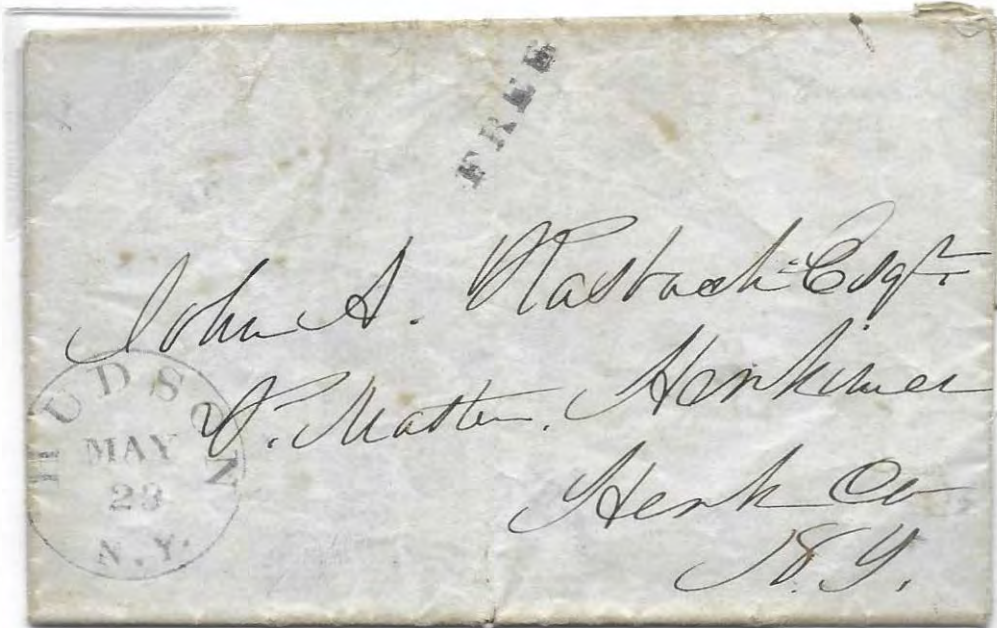 FREE
John A. Rasbach Esqr.
P. Master, Herkimer
Herk Co
N.Y.
HUDSON
MAY
23
N.Y.